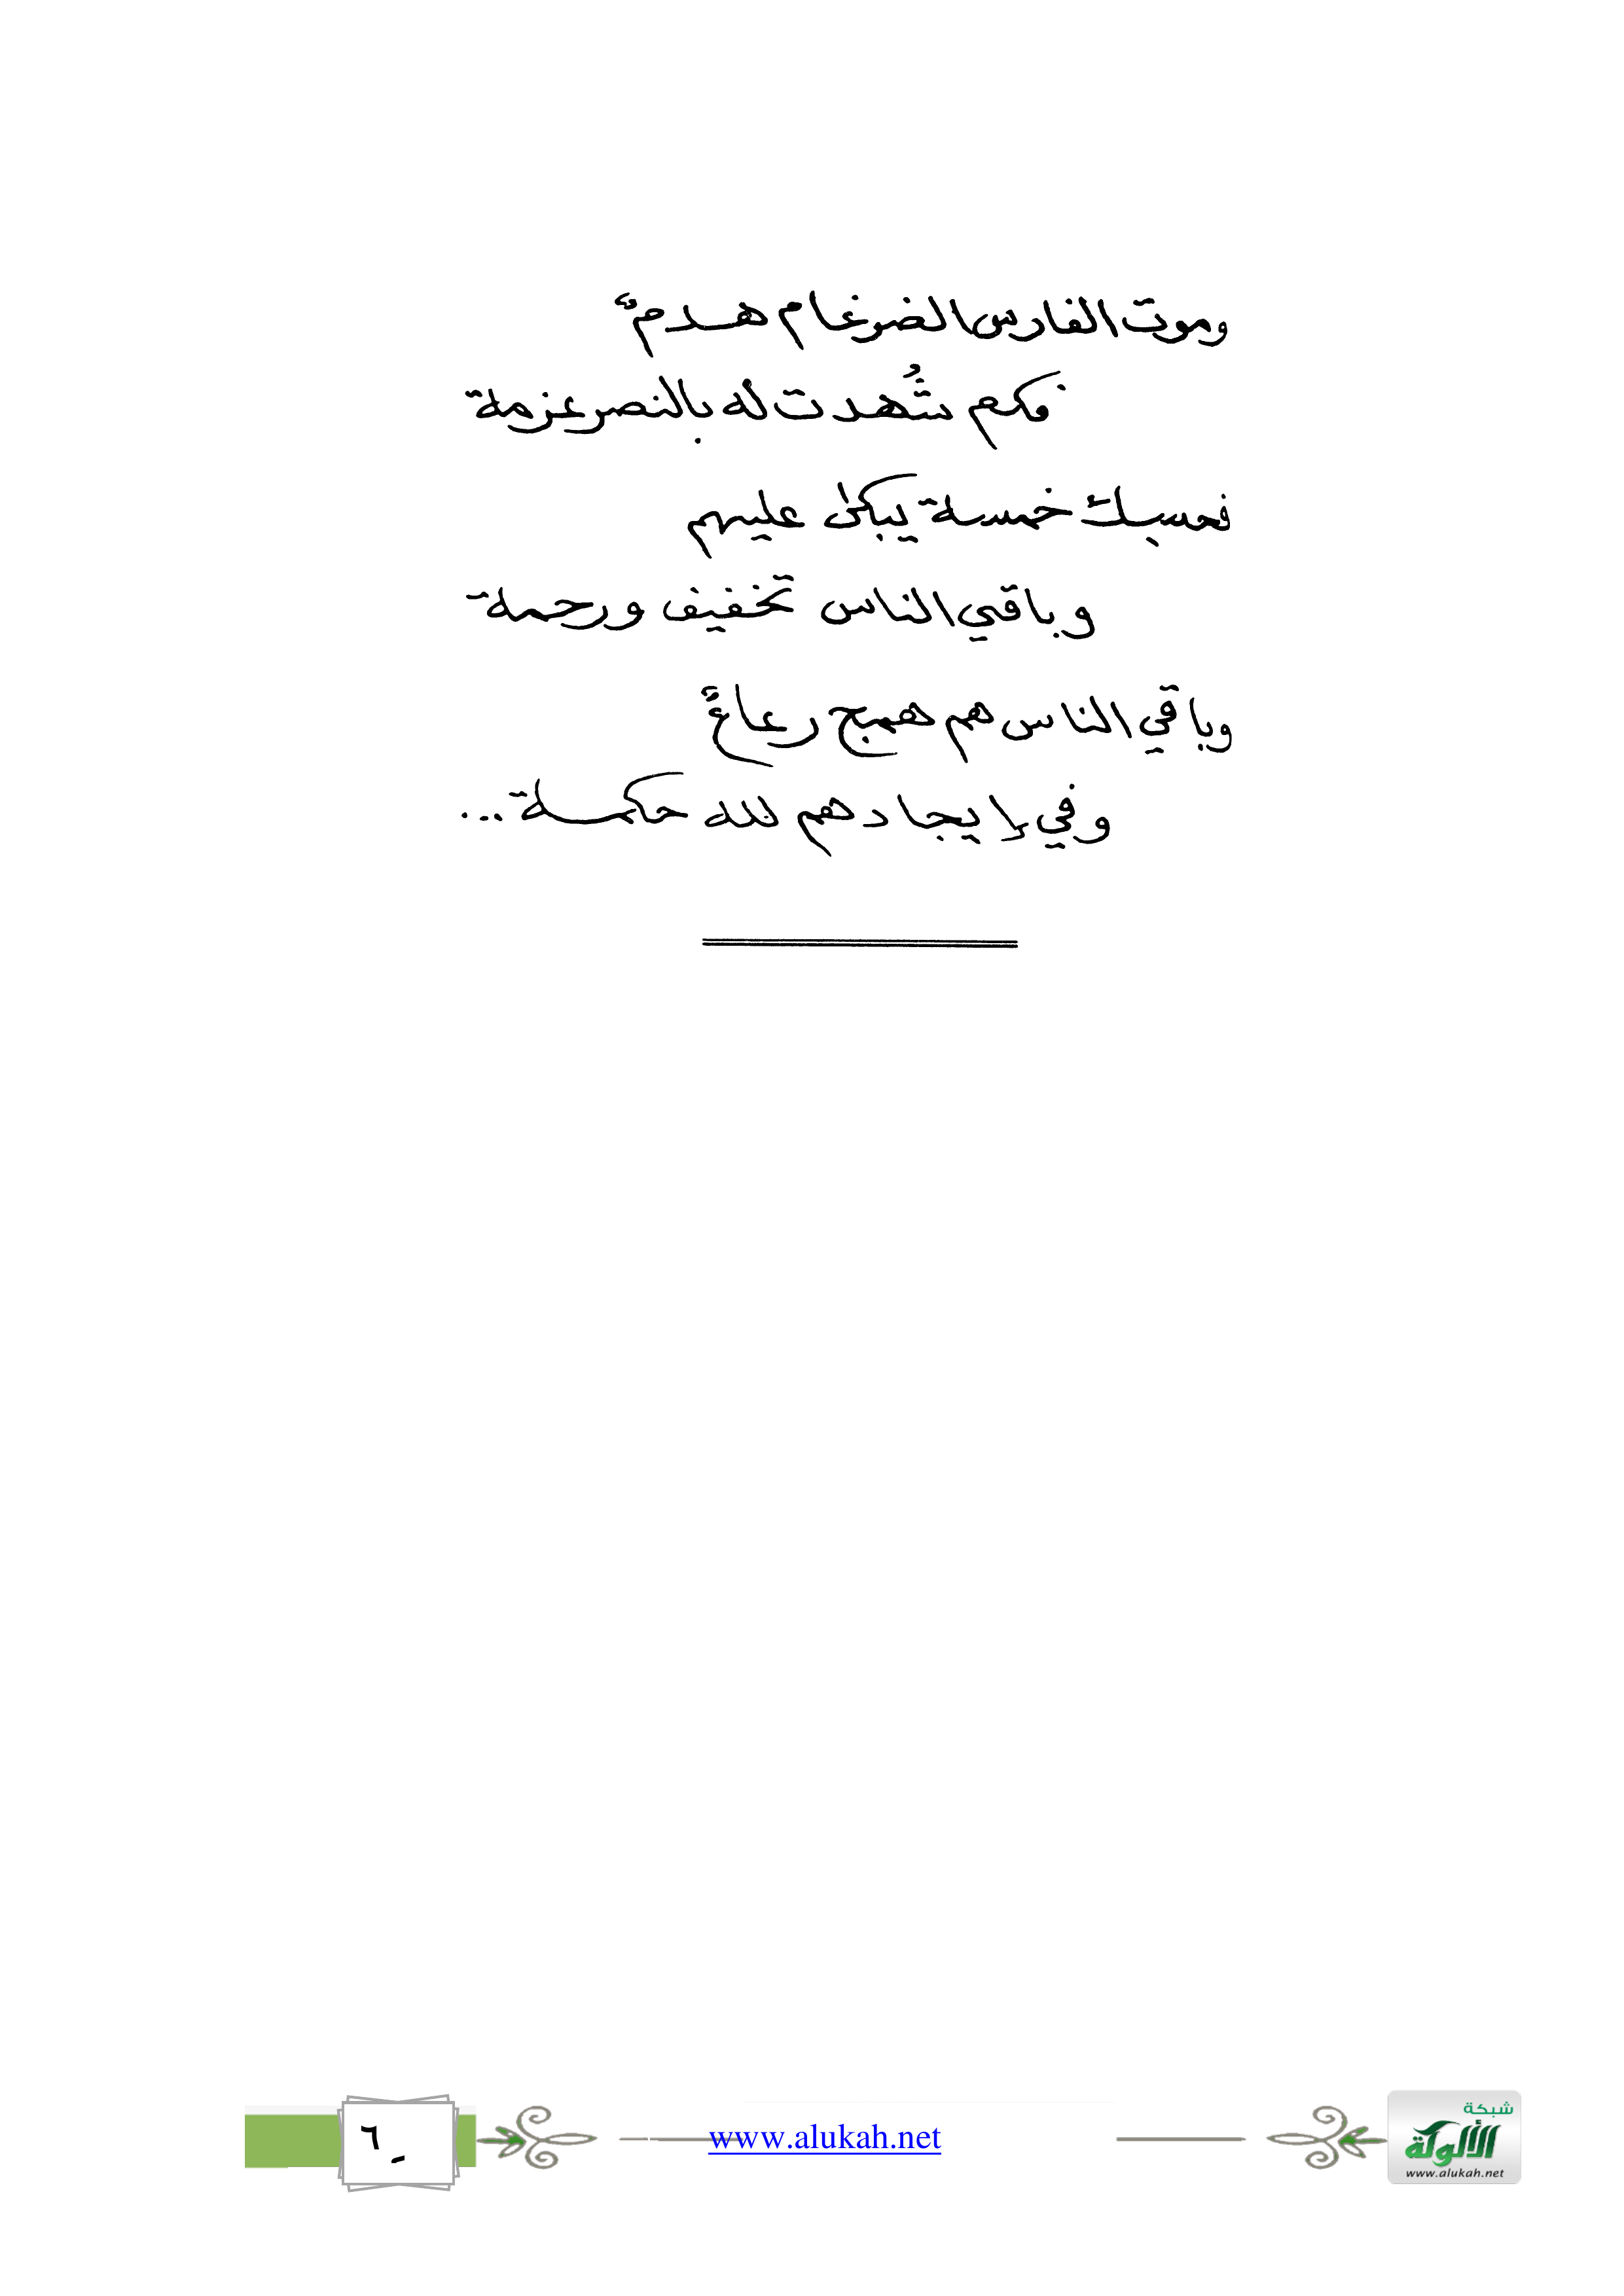 وموت الفارس الضرغام هدمٌ
فكم شُهدت له بالنصر عزمة
فحسبك خمسة يبكى عليهم
وباقي الناس تخفيف ورحمة
وباقي الناس هم همج رعاعٌ
وفي إيجادهم لله حكمة...
٦ -
www.alukah.net
شبكة
الألوكة
www.alukah.net